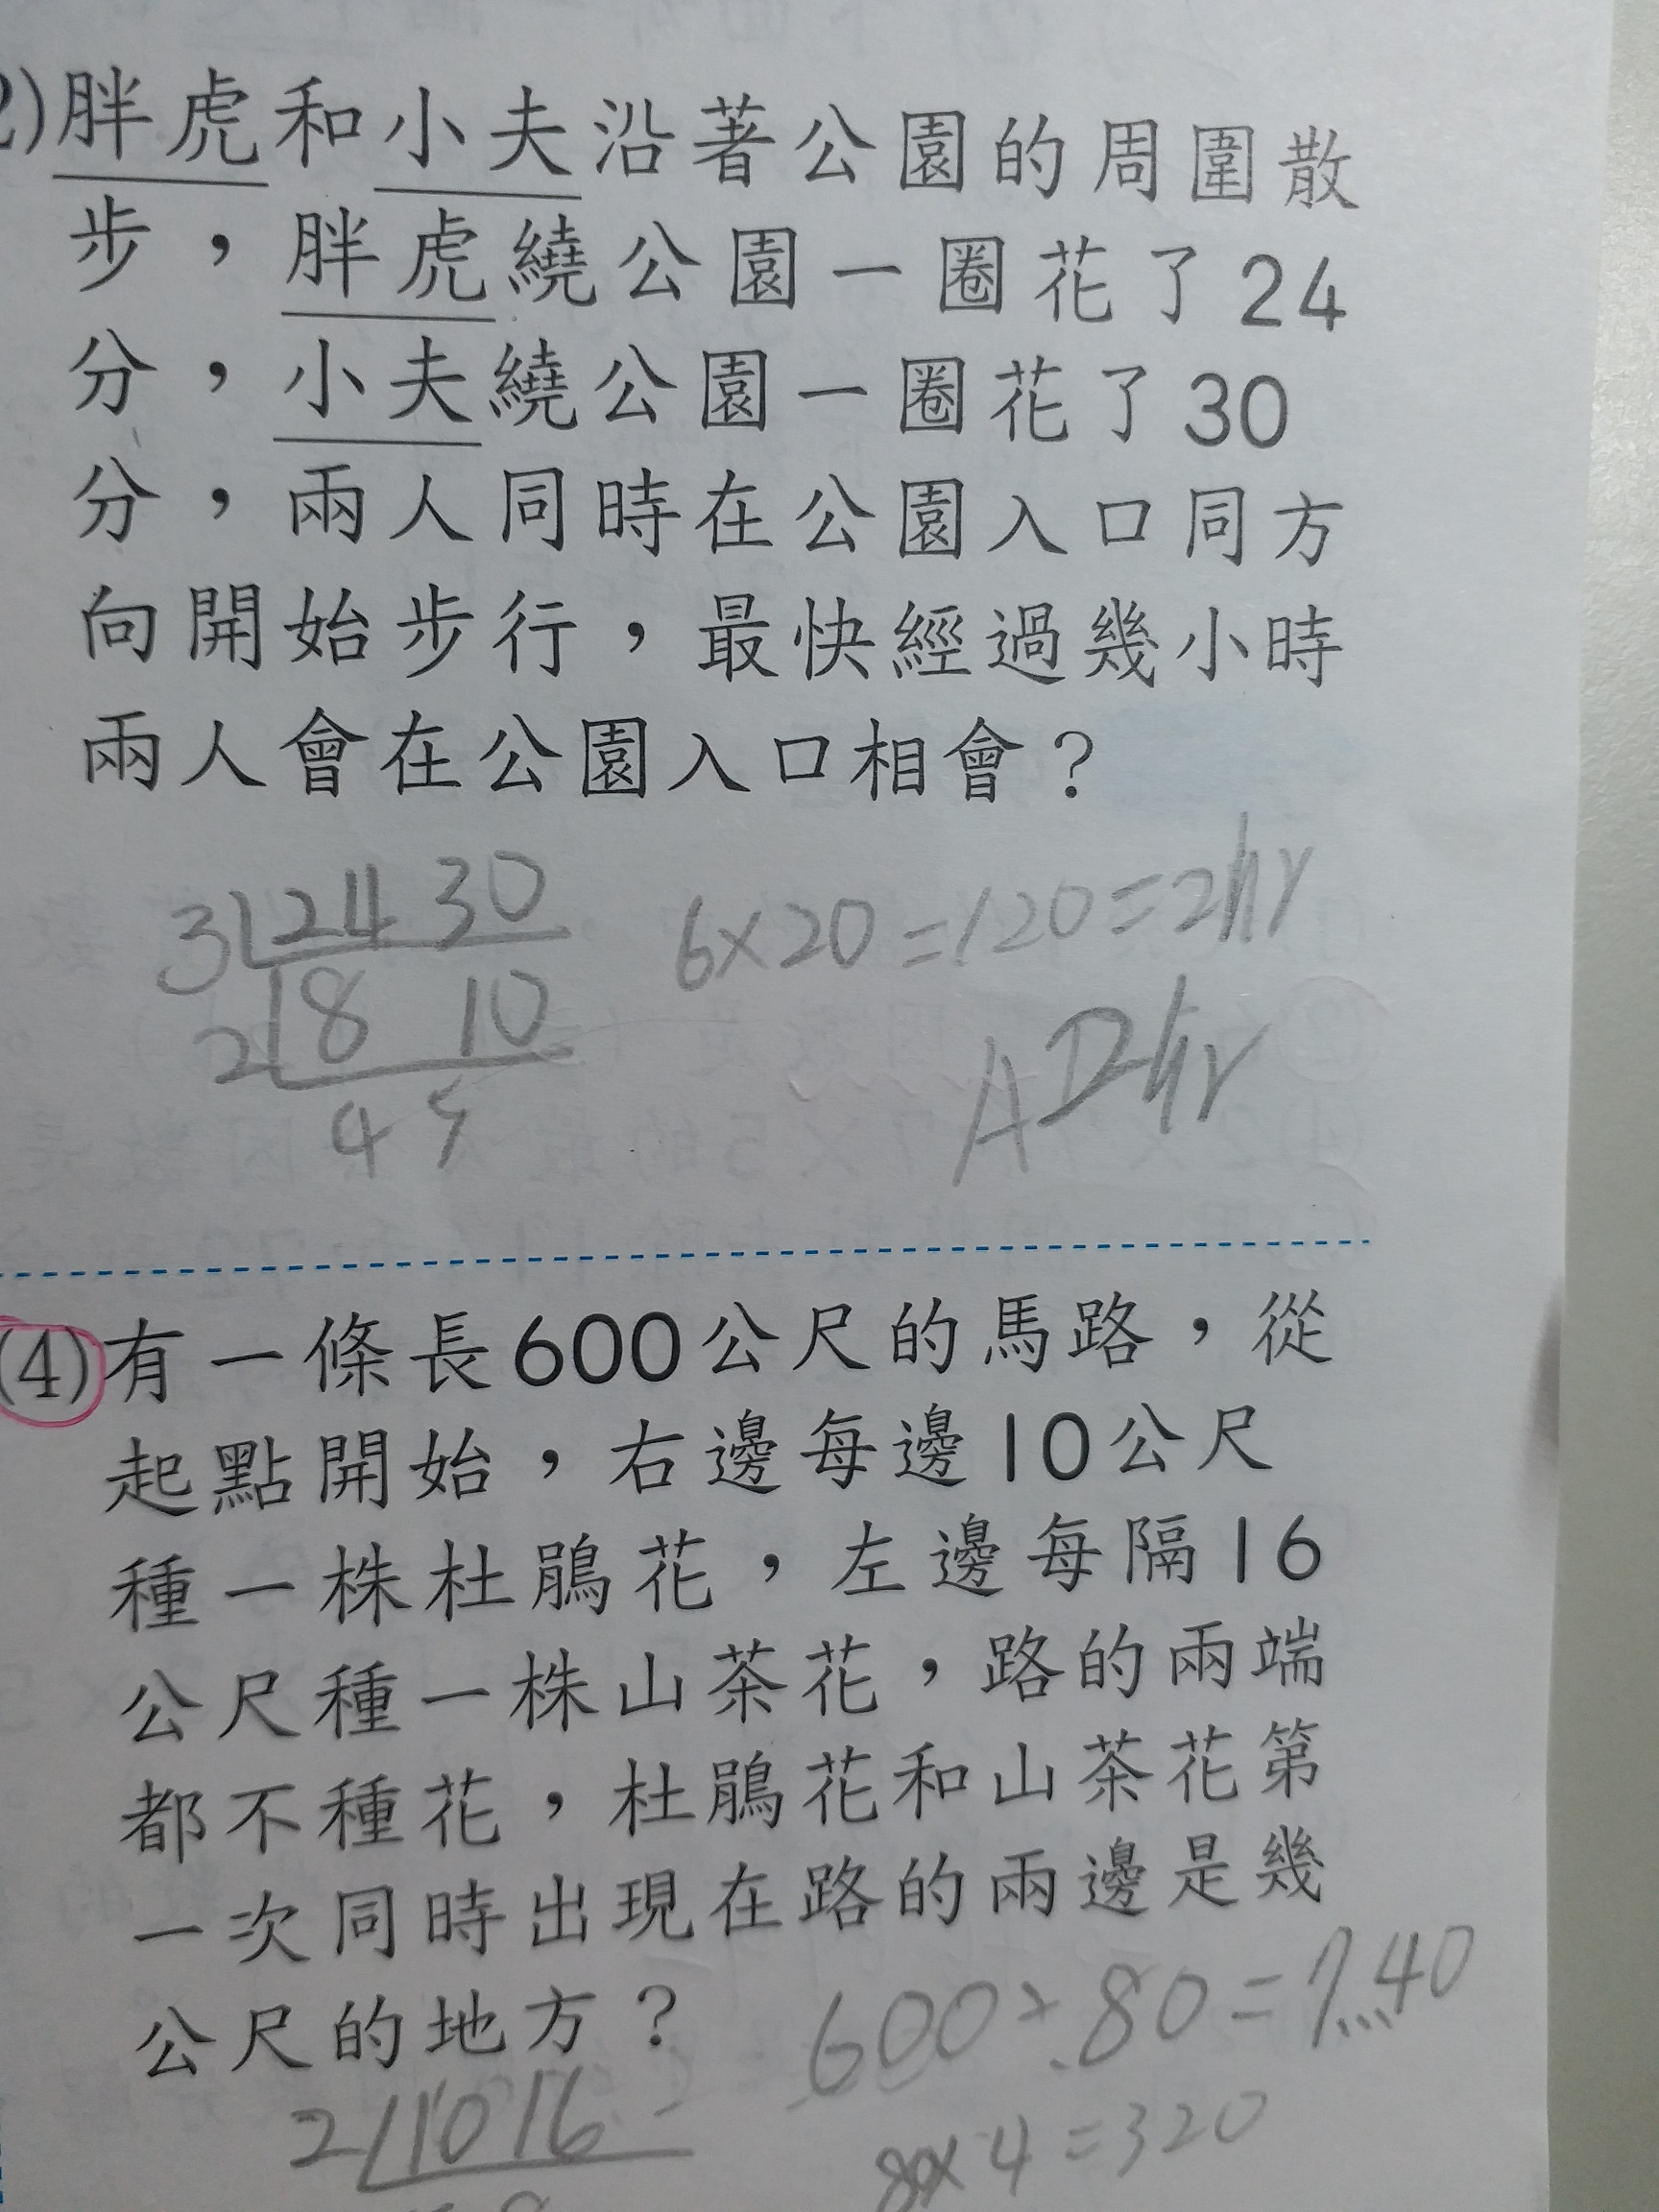 2)胖虎和小夫沿著公園的周圍散
步，胖虎繞公園一圈花了24
分，小夫繞公園一圈花了30
分，兩人同時在公園入口同方
向開始步行，最快經過幾小時
兩人會在公園入口相會？
3 24 30
6×20=120=2hr
2 8 10
4 5
A 2hr
(4)有一條長600公尺的馬路，從
起點開始，右邊每邊10公尺
種一株杜鵑花，左邊每隔16
公尺種一株山茶花，路的兩端
都不種花，杜鵑花和山茶花第
一次同時出現在路的兩邊是幾
公尺的地方？
600÷80=7...40
2 10 16
80×4=320